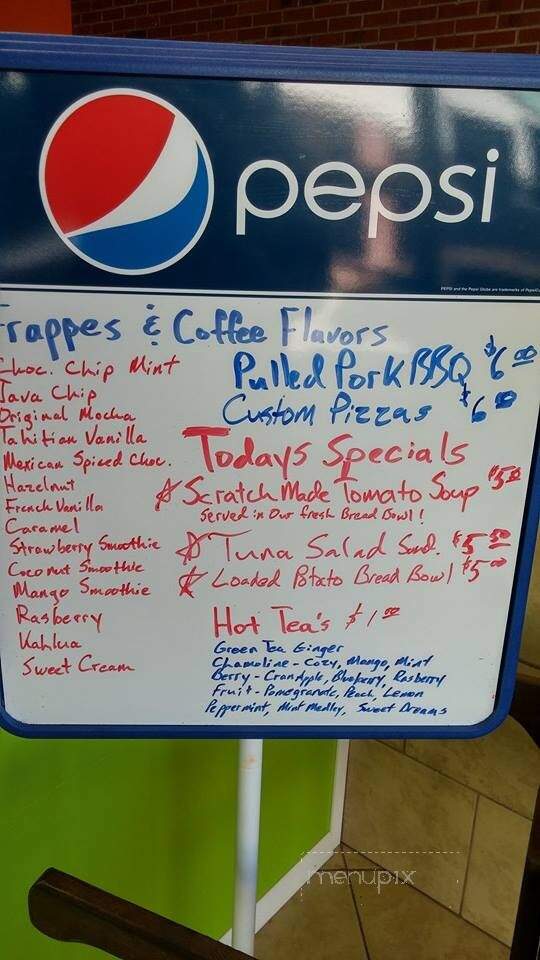 pepsi
PEPSI and the Pepsi Globe are trademarks of PepsiCo
Frappes & Coffee Flavors
Choc. Chip Mint
Java Chip
Original Mocha
Tahitian Vanilla
Mexican Spiced Choc.
Hazelnut
French Vanilla
Caramel
Strawberry Smoothie
Coconut Smoothie
Mango Smoothie
Rasberry
Kahlua
Sweet Cream
Pulled Pork BBQ $6 00
Custom Pizzas $6 00
Todays Specials
Scratch Made Tomato Soup $5.00
Served in Our fresh Bread Bowl!
Tuna Salad Sand. $5 50
Loaded Potato Bread Bowl $5 00
Hot Tea's $1 00
Green Tea Ginger
Chamoline - Cozy, Mango, Mint
Berry - CranApple, Blueberry, Rasberry
Fruit - Pomegranate, Peach, Lemon
Peppermint, Mint Medley, Sweet Dreams
menupix